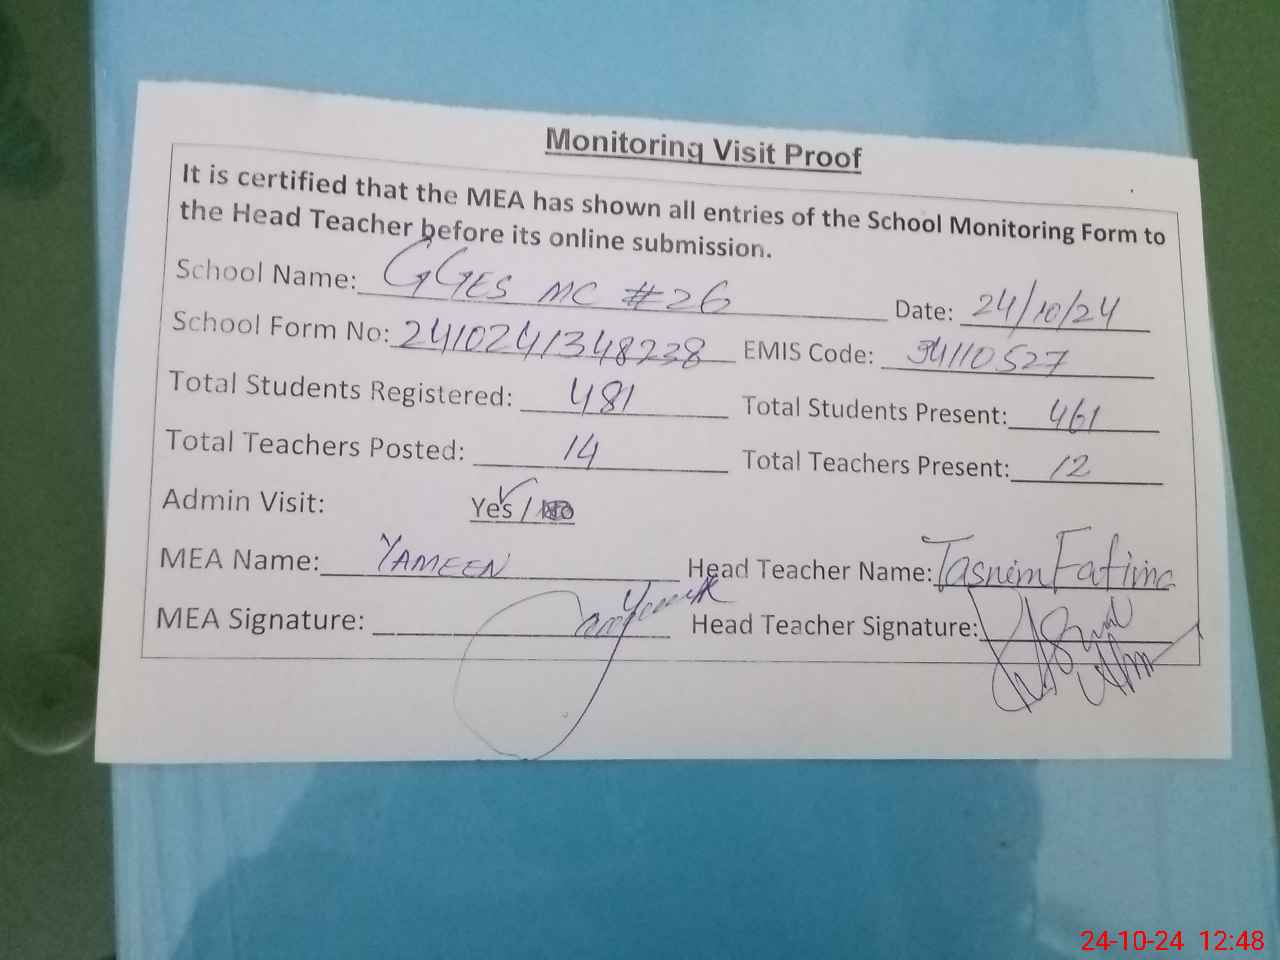 Monitoring Visit Proof
It is certified that the MEA has shown all entries of the School Monitoring Form to
the Head Teacher before its online submission.
School Name: GGES MC #26 Date: 24/10/24
School Form No: 2410241348238 EMIS Code: 34110527
Total Students Registered: 481 Total Students Present: 461
Total Teachers Posted: 14 Total Teachers Present: 12
Admin Visit: Yes / No
MEA Name: YAMEEN Head Teacher Name: Tasnim Fatima
MEA Signature: Head Teacher Signature:
24-10-24 12:48